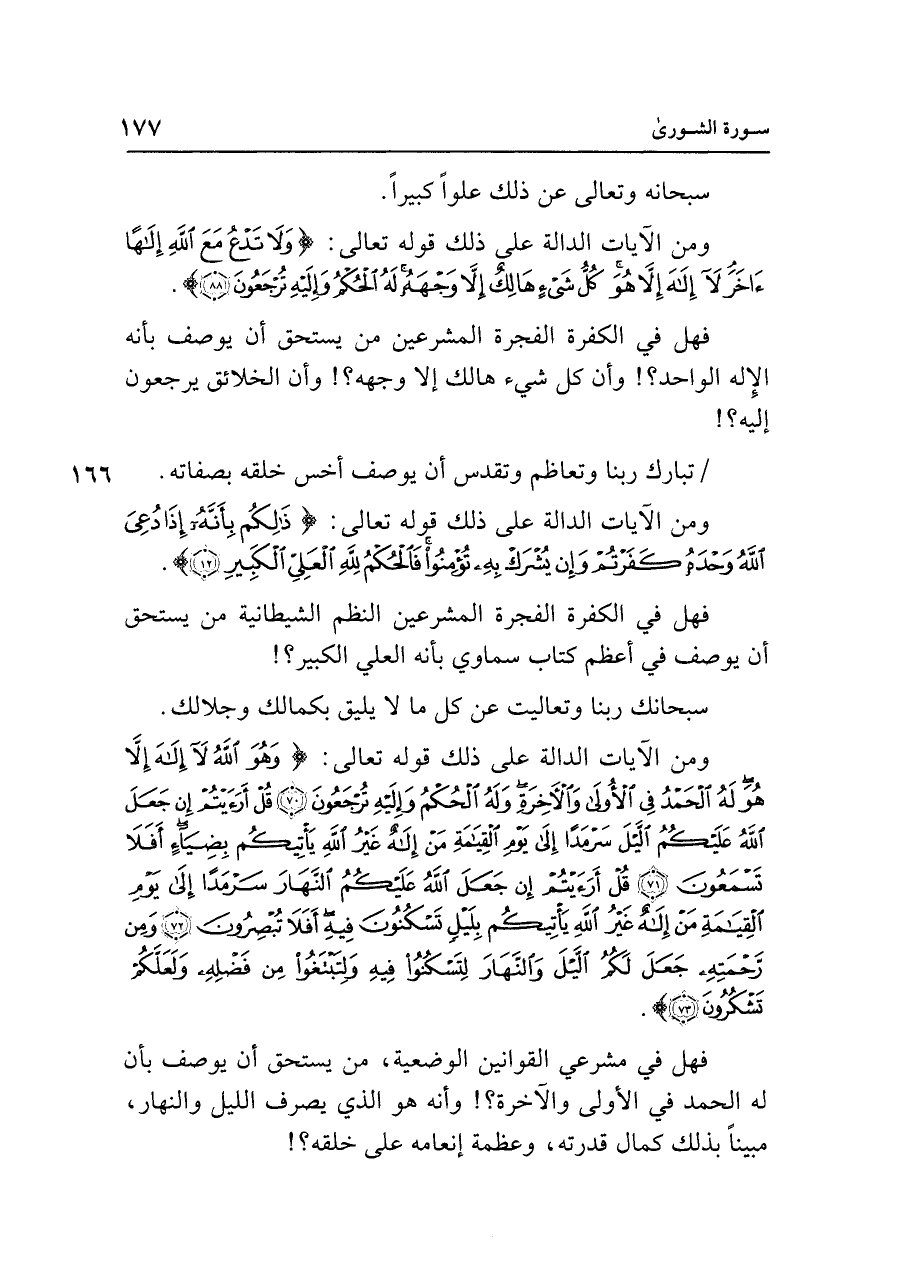 سورة الشورى ١٧٧
سبحانه وتعالى عن ذلك علواً كبيراً.
ومن الآيات الدالة على ذلك قوله تعالى: ﴿وَلَا تَدْعُ مَعَ ٱللَّهِ إِلَٰهًا
ءَاخَرَۘ لَآ إِلَٰهَ إِلَّا هُوَۚ كُلُّ شَىْءٍ هَالِكٌ إِلَّا وَجْهَهُۥۚ لَهُ ٱلْحُكْمُ وَإِلَيْهِ تُرْجَعُونَ ٨٨﴾.
فهل في الكفرة الفجرة المشرعين من يستحق أن يوصف بأنه
الإِله الواحد؟! وأن كل شيء هالك إلا وجهه؟! وأن الخلائق يرجعون
إليه؟!
/ تبارك ربنا وتعاظم وتقدس أن يوصف أخس خلقه بصفاته. ١٦٦
ومن الآيات الدالة على ذلك قوله تعالى: ﴿ذَٰلِكُم بِأَنَّهُۥٓ إِذَا دُعِىَ
ٱللَّهُ وَحْدَهُۥ كَفَرْتُمْ وَإِن يُشْرَكْ بِهِۦ تُؤْمِنُوا۟ۚ فَٱلْحُكْمُ لِلَّهِ ٱلْعَلِىِّ ٱلْكَبِيرِ ١٢﴾.
فهل في الكفرة الفجرة المشرعين النظم الشيطانية من يستحق
أن يوصف في أعظم كتاب سماوي بأنه العلي الكبير؟!
سبحانك ربنا وتعاليت عن كل ما لا يليق بكمالك وجلالك.
ومن الآيات الدالة على ذلك قوله تعالى: ﴿وَهُوَ ٱللَّهُ لَآ إِلَٰهَ إِلَّا
هُوَۖ لَهُ ٱلْحَمْدُ فِى ٱلْأُولَىٰ وَٱلْءَاخِرَةِۖ وَلَهُ ٱلْحُكْمُ وَإِلَيْهِ تُرْجَعُونَ ٧٠ قُلْ أَرَءَيْتُمْ إِن جَعَلَ
ٱللَّهُ عَلَيْكُمُ ٱلَّيْلَ سَرْمَدًا إِلَىٰ يَوْمِ ٱلْقِيَٰمَةِ مَنْ إِلَٰهٌ غَيْرُ ٱللَّهِ يَأْتِيكُم بِضِيَآءٍۖ أَفَلَا
تَسْمَعُونَ ٧١ قُلْ أَرَءَيْتُمْ إِن جَعَلَ ٱللَّهُ عَلَيْكُمُ ٱلنَّهَارَ سَرْمَدًا إِلَىٰ يَوْمِ
ٱلْقِيَٰمَةِ مَنْ إِلَٰهٌ غَيْرُ ٱللَّهِ يَأْتِيكُم بِلَيْلٍ تَسْكُنُونَ فِيهِۖ أَفَلَا تُبْصِرُونَ ٧٢ وَمِن
رَّحْمَتِهِۦ جَعَلَ لَكُمُ ٱلَّيْلَ وَٱلنَّهَارَ لِتَسْكُنُوا۟ فِيهِ وَلِتَبْتَغُوا۟ مِن فَضْلِهِۦ وَلَعَلَّكُمْ
تَشْكُرُونَ ٧٣﴾.
فهل في مشرعي القوانين الوضعية، من يستحق أن يوصف بأن
له الحمد في الأولى والآخرة؟! وأنه هو الذي يصرف الليل والنهار،
مبيناً بذلك كمال قدرته، وعظمة إنعامه على خلقه؟!